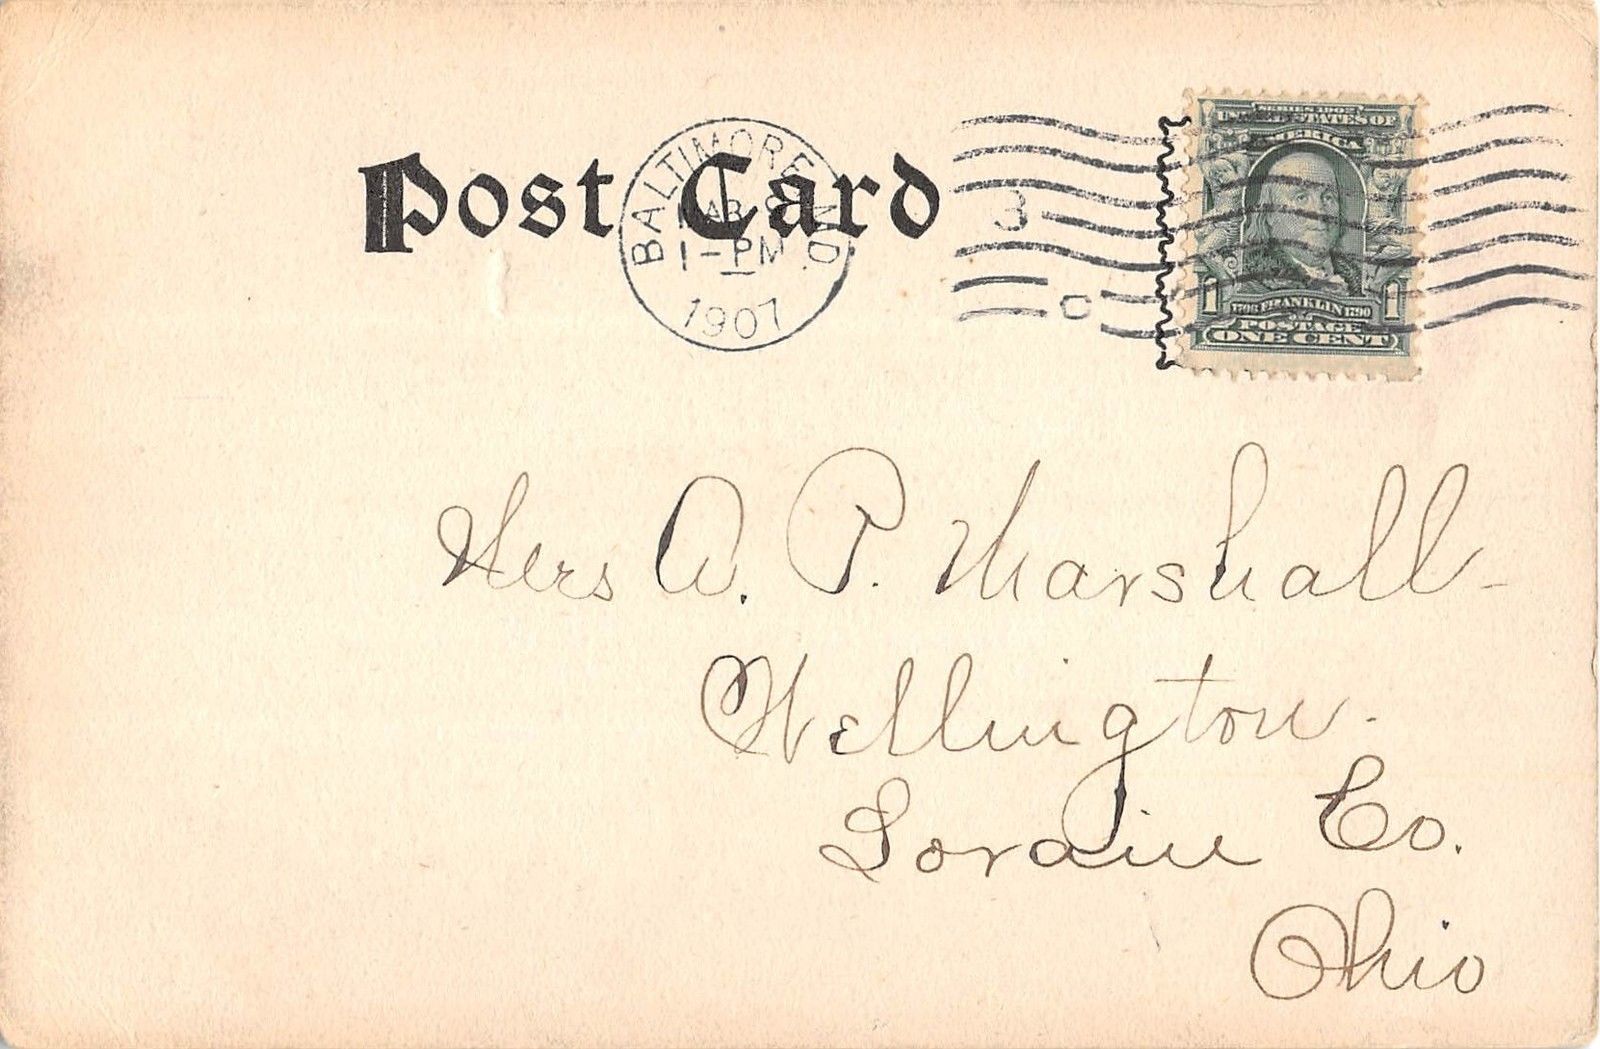 Post Card
BALTIMORE, MD.
MAR
1-PM
1907
3
C
SERIES 1902
UNITED STATES OF
AMERICA
1 1706 FRANKLIN 1790 1
POSTAGE
ONE CENT
Mrs A. P. Marshall-
Wellington.
Lorain Co.
Ohio